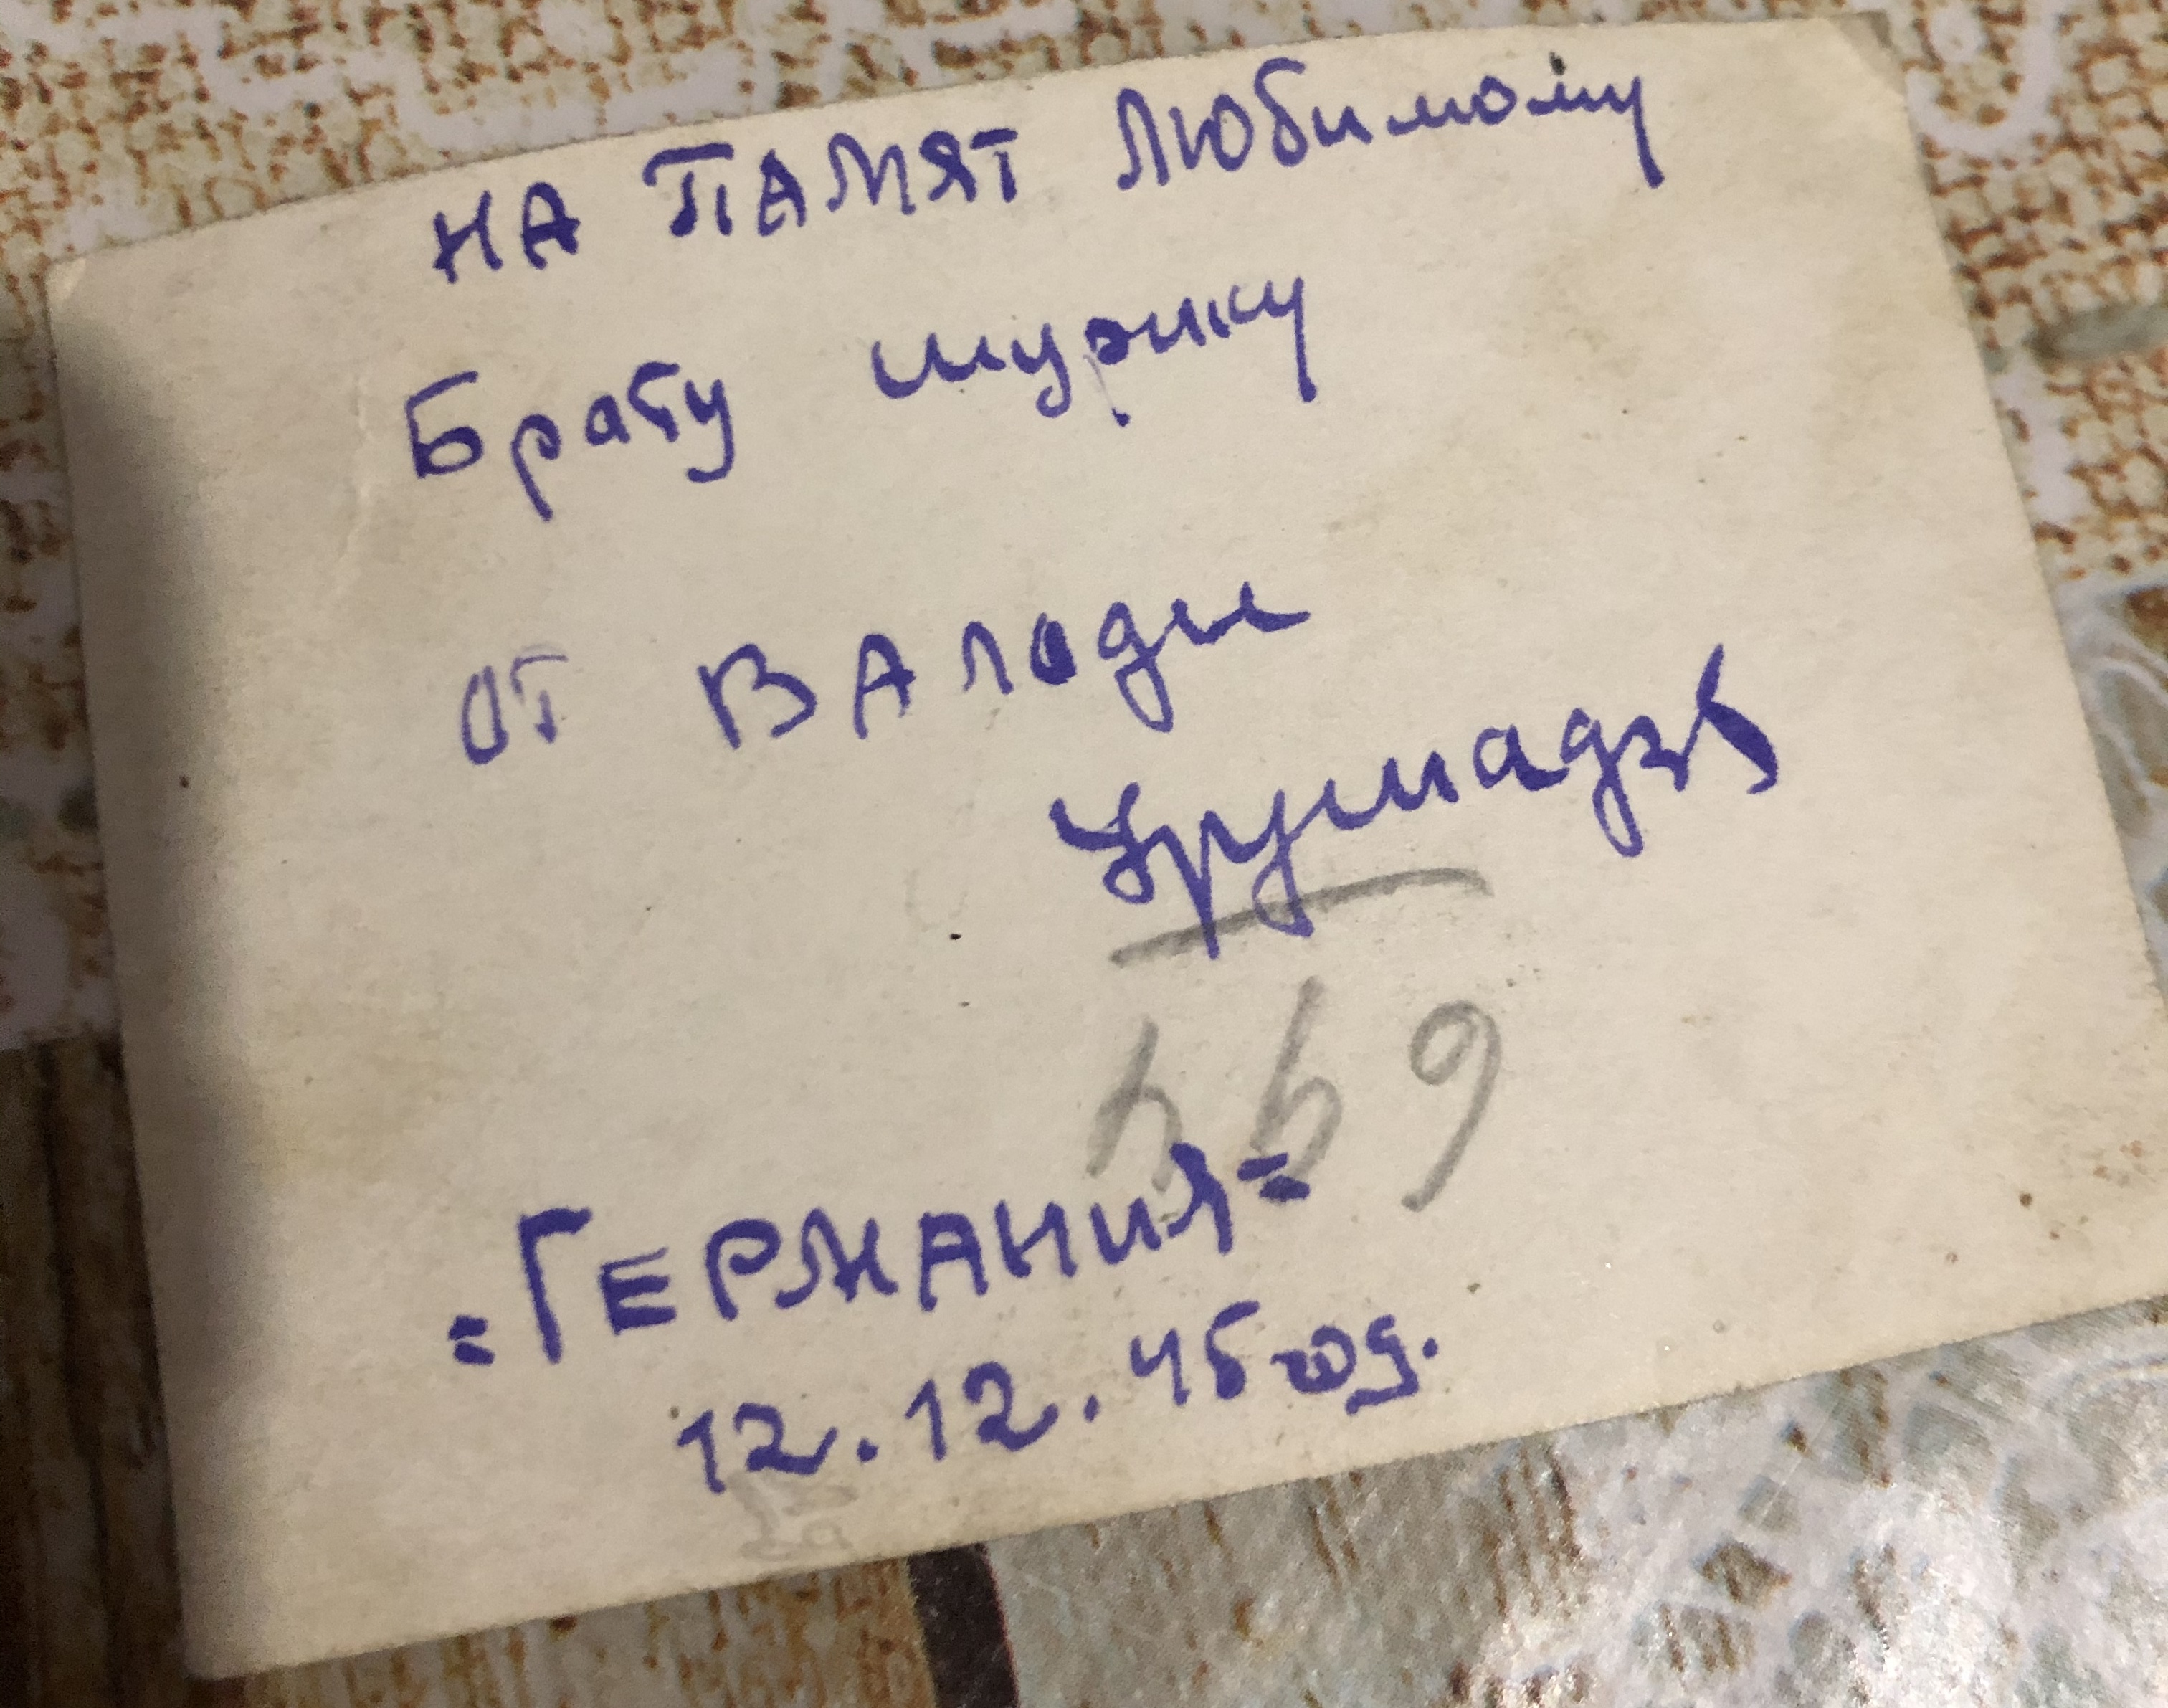 НА ПАМЯТ Любимому
Брату шурику
от ВАлоди
Урушадзе
669
"ГЕРМАНИЯ"
12.12.45 год.